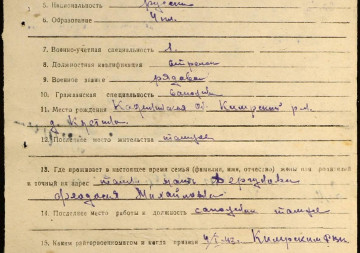 5. Национальность русский
6. Образование 4 кл.
7. Военно-учетная специальность 1.
8. Должностная квалификация стрелок
9. Военное звание рядовой
10. Гражданская специальность сапожн
11. Место рождения Калининская об. Кимрский р-н
д.
12. Последнее место жительства там же
13. Где проживает в настоящее время семья (фамилия, имя, отчество) жены или родителей
и точный их адрес там же мать
Михайловна
14. Последнее место работы и должность сапожник там же
15. Каким райгорвоенкоматом и когда призван Кимрским РВК